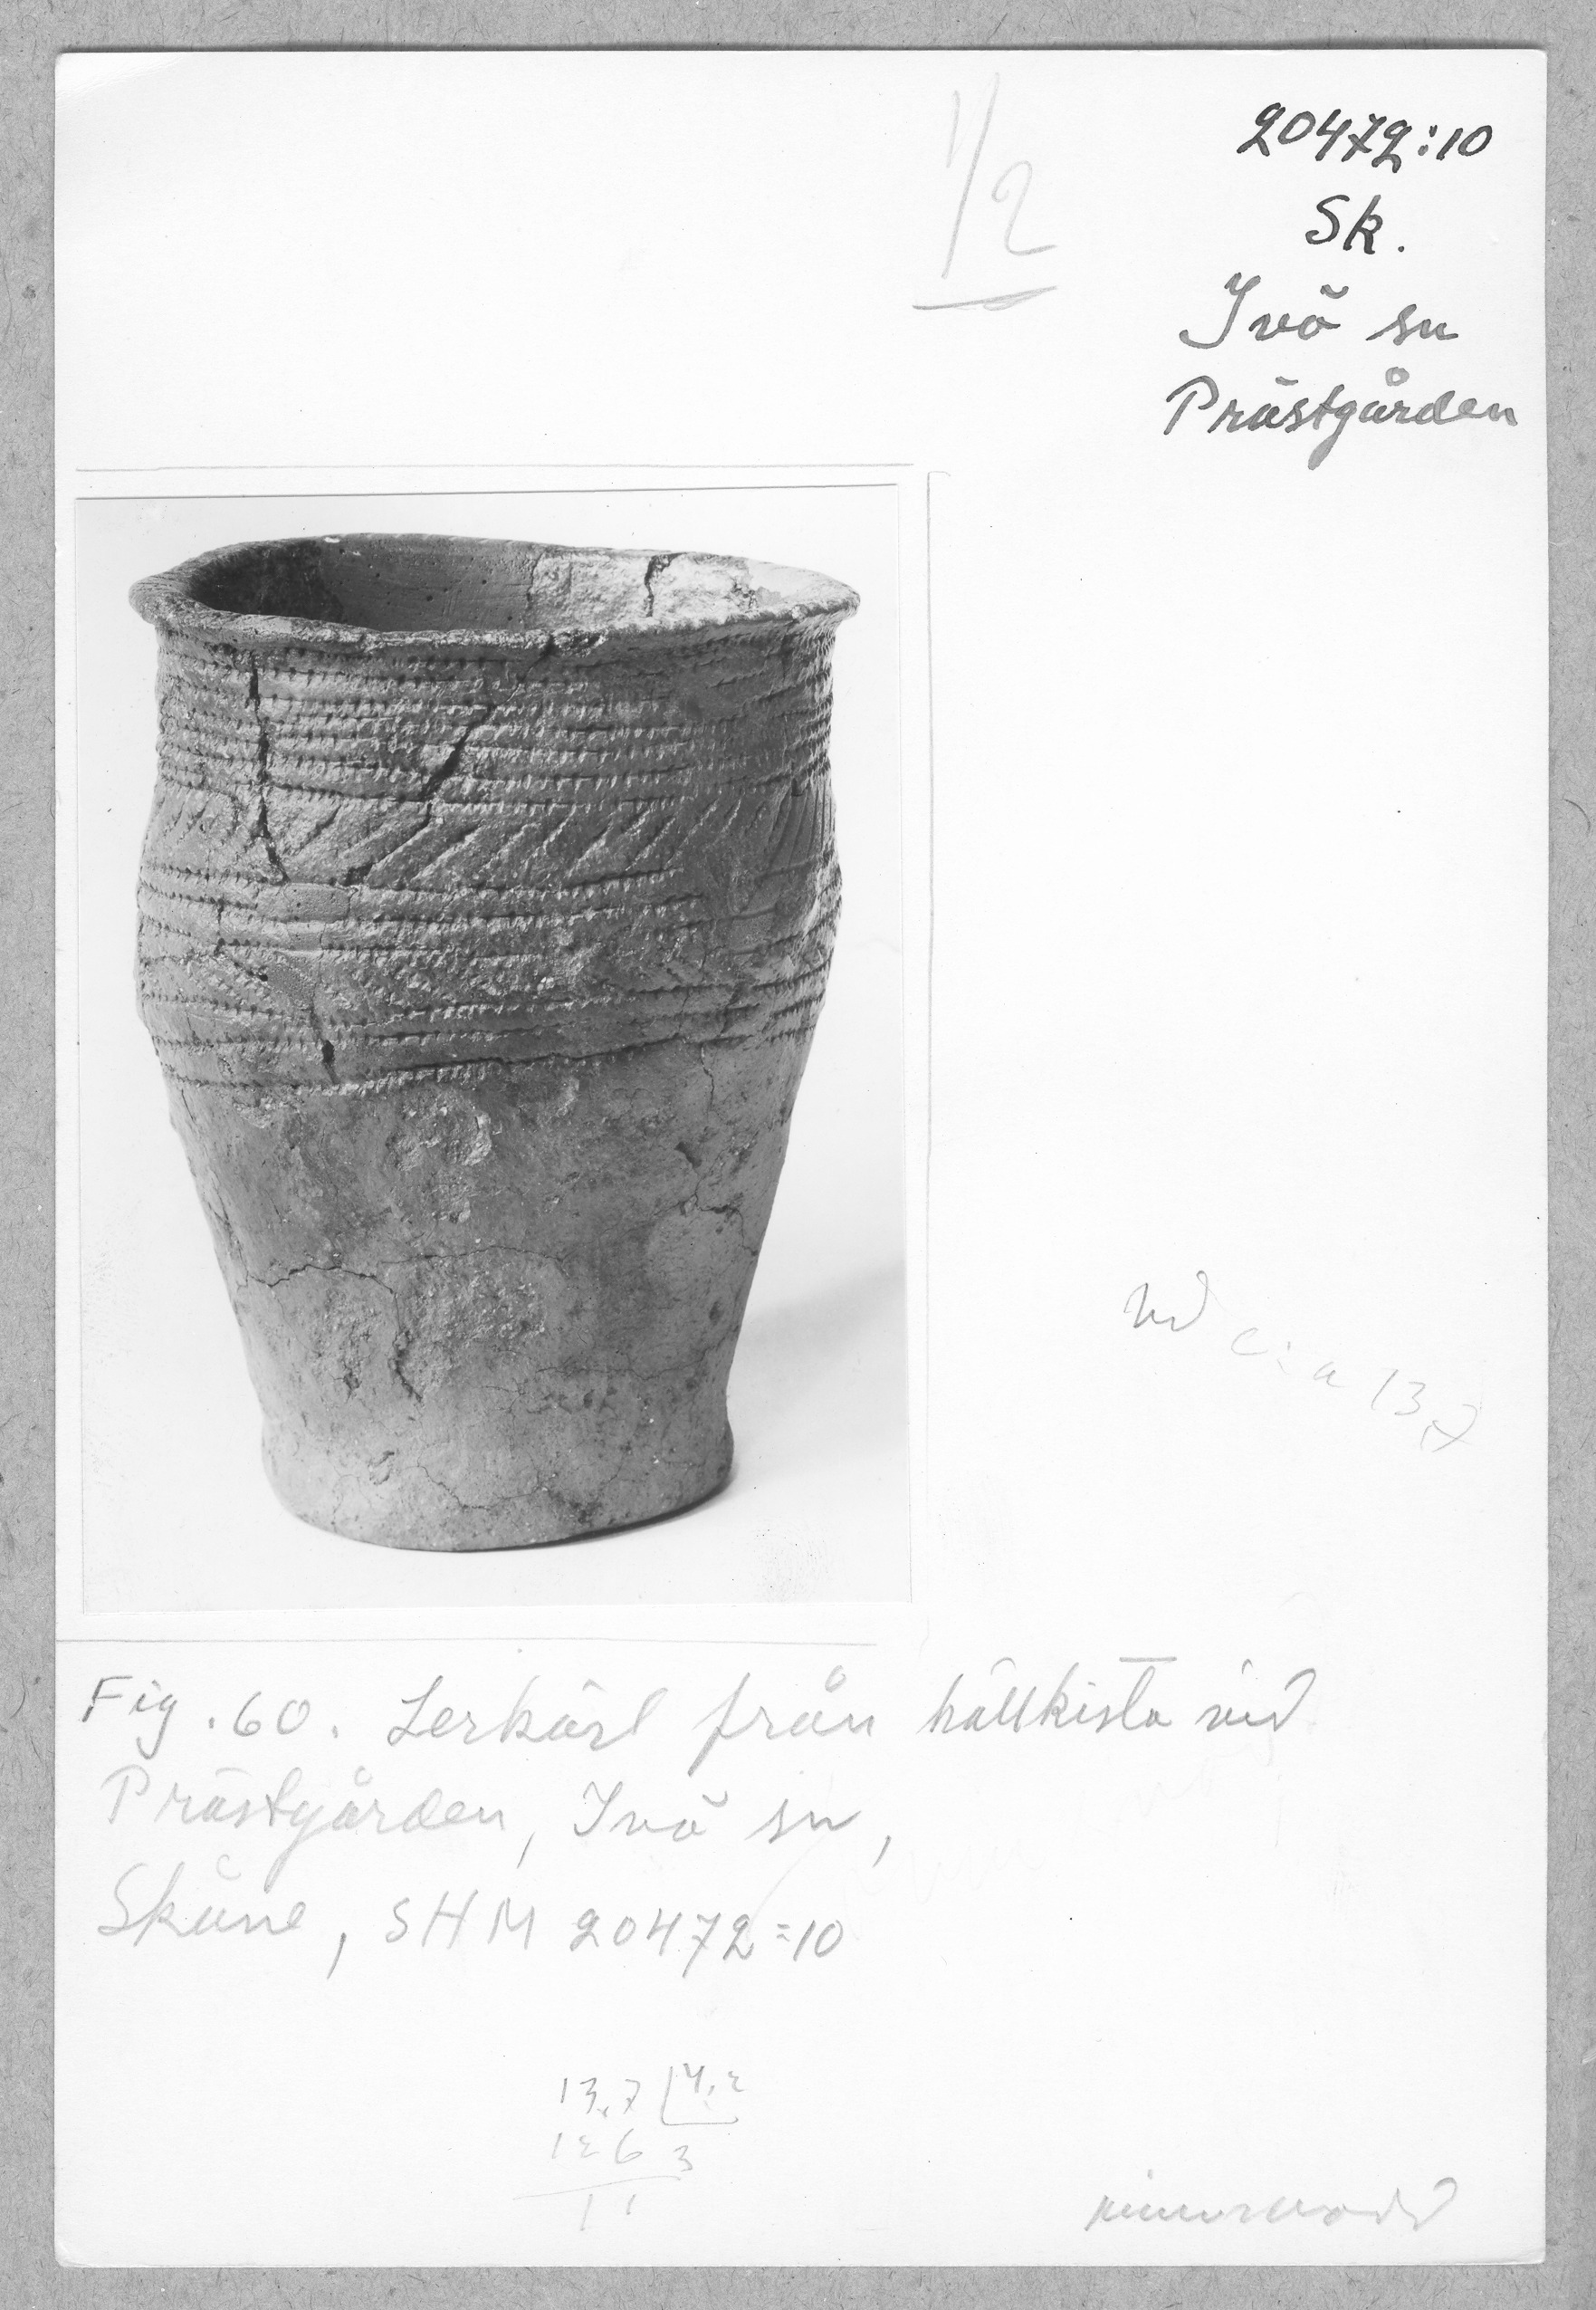 1/2
20472:10
Sk.
Ivö sn
Prästgården
c:a 13,7
Fig. 60. Lerkärl från hällkista vid
Prästgården, Ivö sn,
Skåne, SHM 20472:10
13,7 4,2
126 3
11